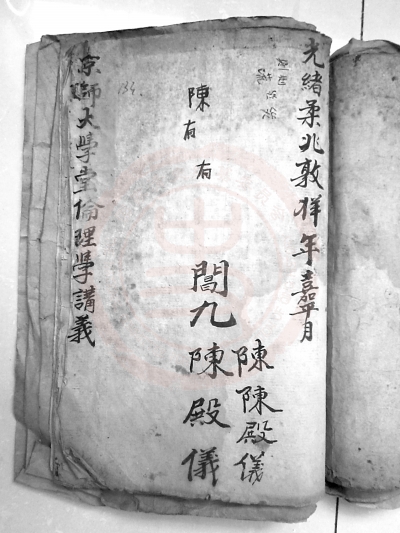 光緒柔兆敦牂年嘉平月
陳有有
陳陳殿儀
閶九陳殿儀
京師大學堂倫理學講義
134.